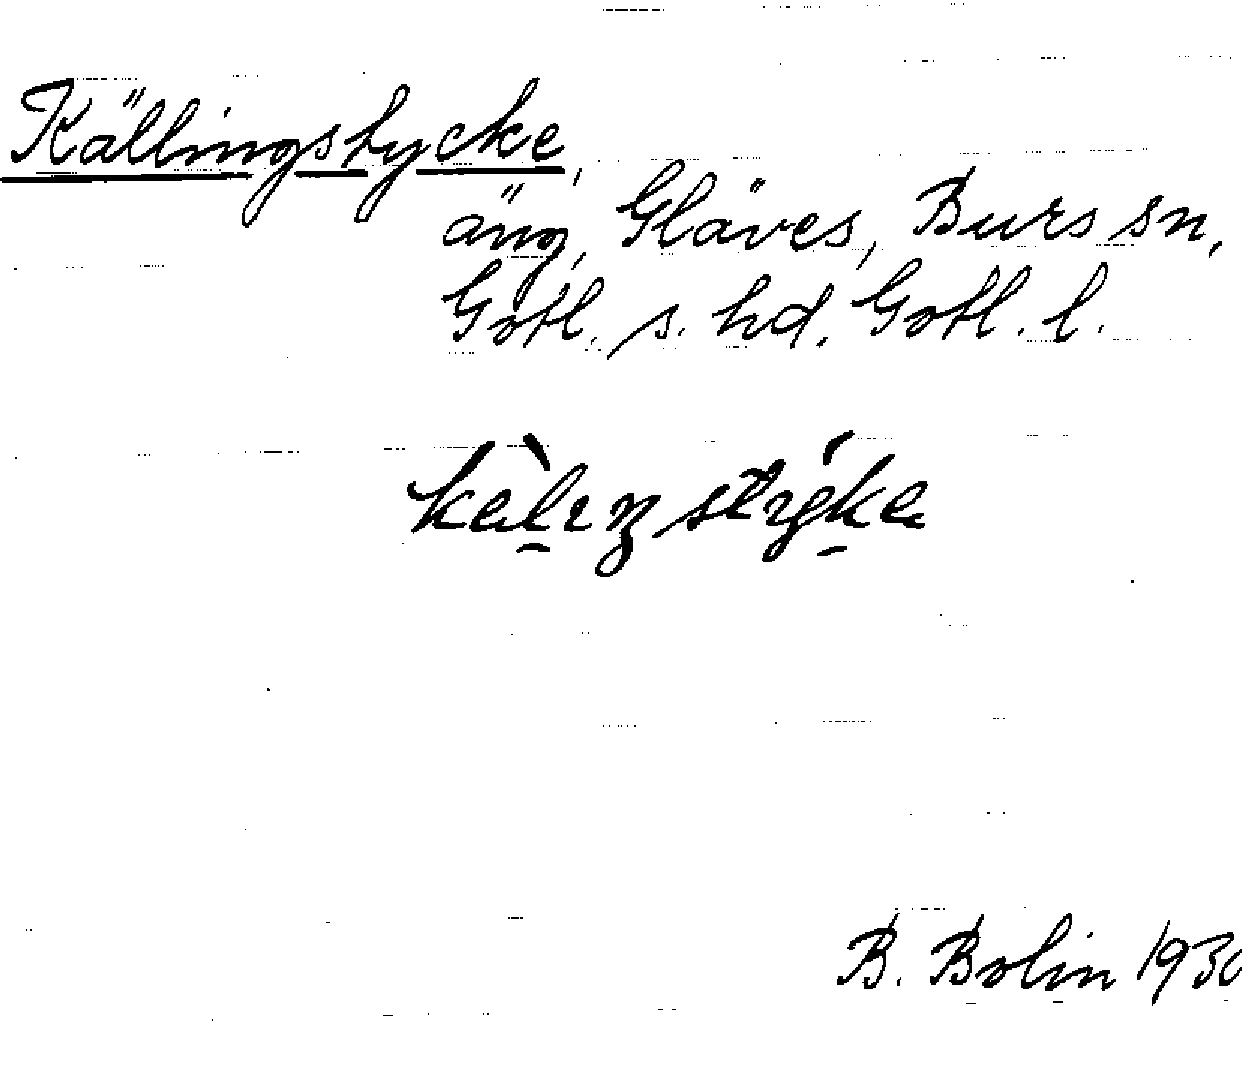 Källingstycke,
äng, Gläves, Burs sn,
Gotl. s. hd. Gotl. l.
B. Bolin 1930